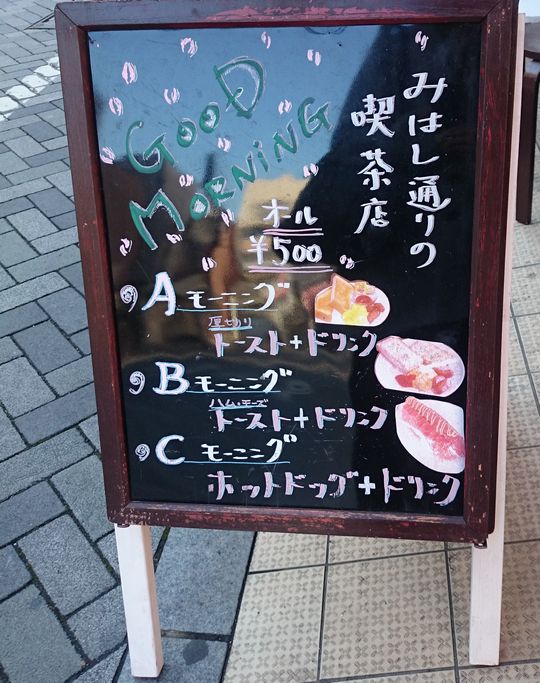 みはし通りの
喫茶店
GOOD
MORNING
オール
¥500
A モーニング
厚切り
トースト+ドリンク
B モーニング
ハム・チーズ
トースト+ドリンク
C モーニング
ホットドッグ+ドリンク